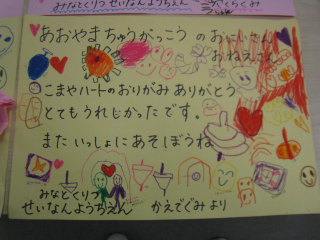 みなとくりつせいなんようちえん
あおやまちゅうがっこう の おにいさん
おねえさん
こまやハートのおりがみ ありがとう
とてもうれしかったです。
また いっしょに あそぼうね
みなとくりつ
せいなんようちえん かえでぐみ より